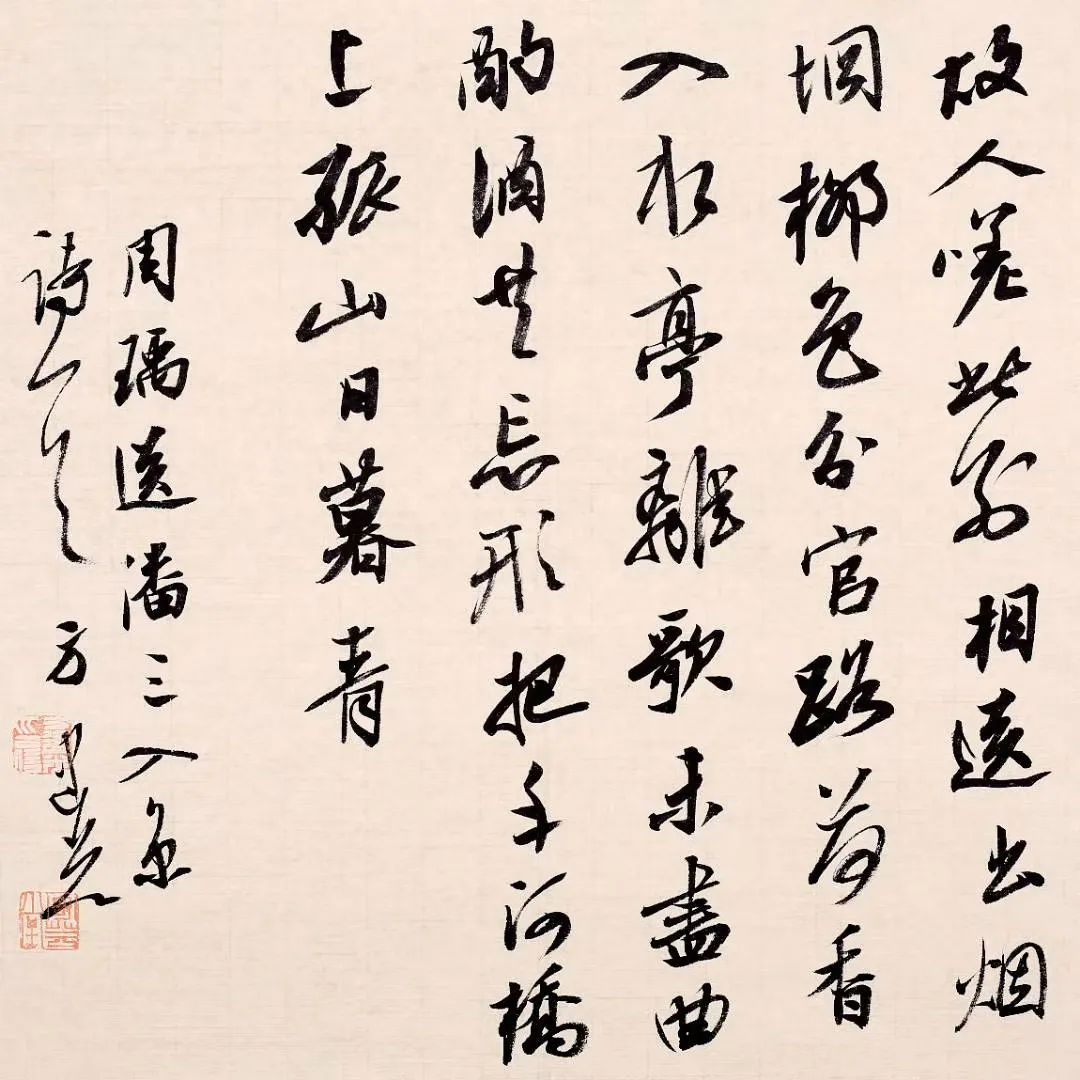 故人嗟此别相送出烟
坰柳色分官路荷香
入水亭離歌未盡曲
酌酒共忘形把手河橋
上孤山日暮青
周瑀送潘三入京
詩一首 方